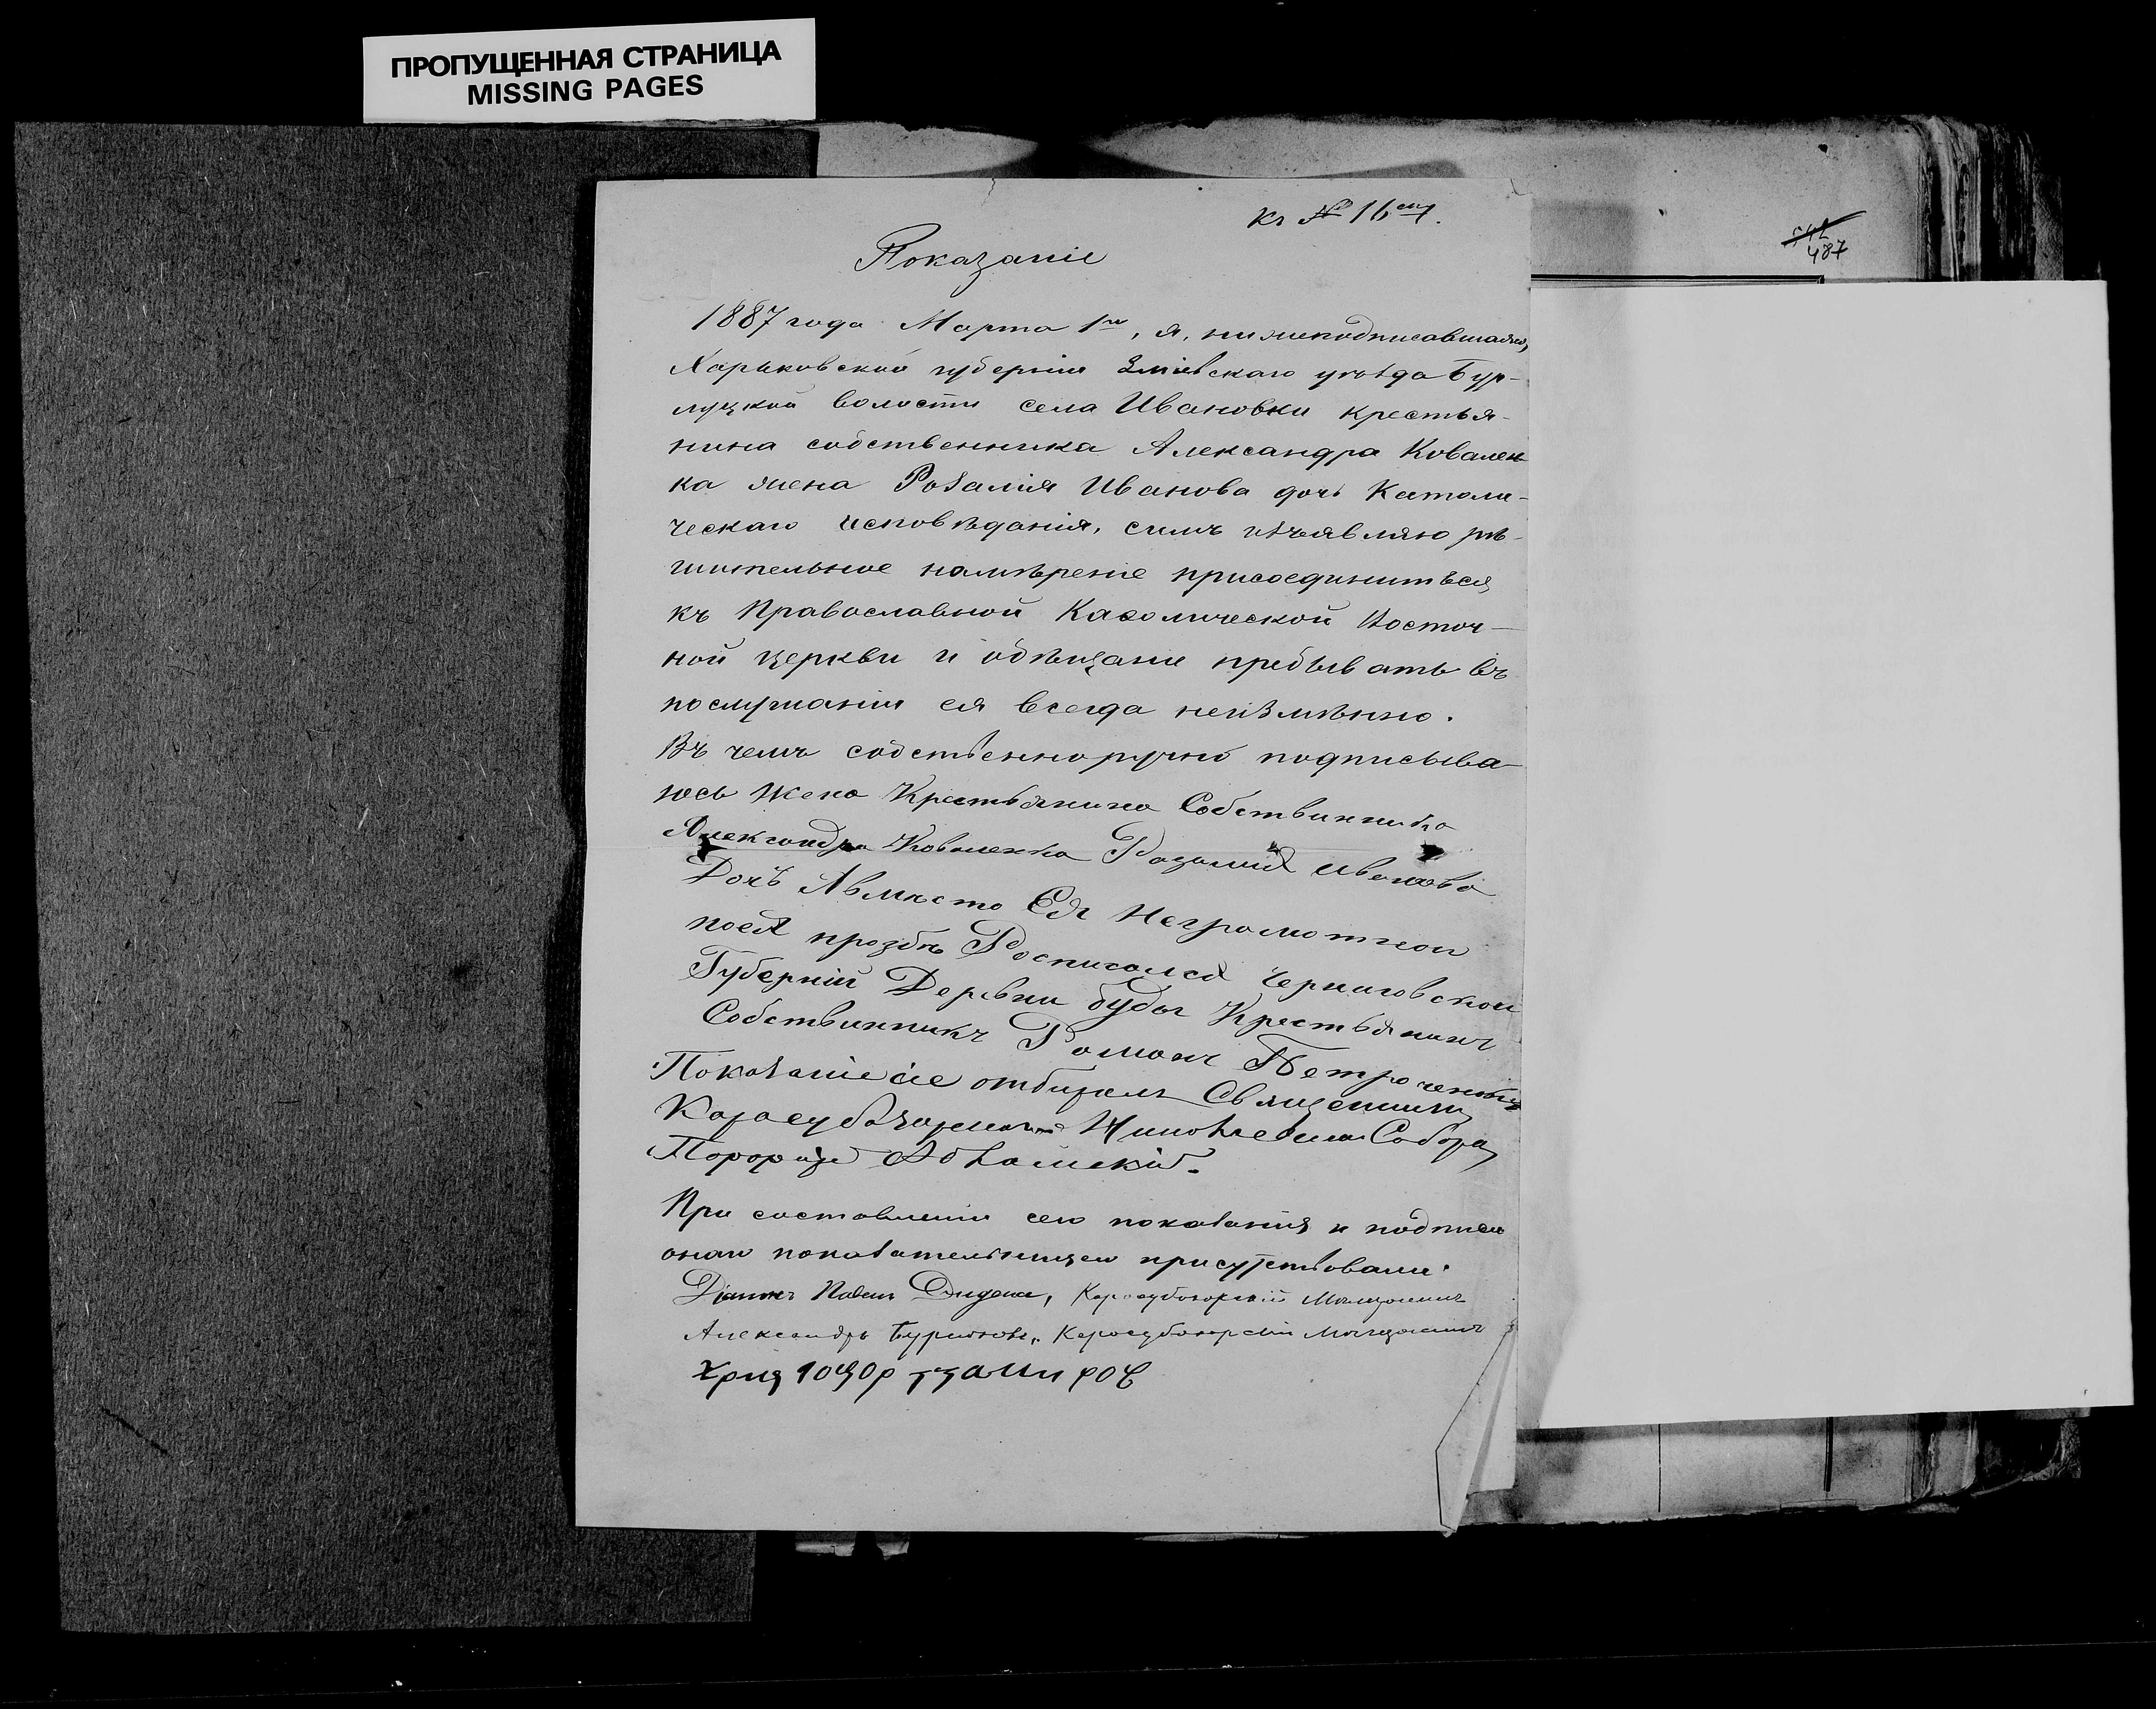 ПРОПУЩЕННАЯ СТРАНИЦА
MISSING PAGES
къ № 16
487
Показаніе
1887 года Марта 1го, я, нижеподписавшаяся,
Харьковской губерніи Зміевскаго уѣзда Бур-
луцкой волости села Ивановки крестья-
нина собственника Александра Ковален
ка жена Розалія Иванова дочь Католи-
ческаго исповѣданія, симъ изъявляю рѣ-
шительное намѣреніе присоединиться
къ Православной Каѳолической Восточ-
ной церкви и обѣщаніе пребывать въ
послушаніи ея всегда неизмѣнно.
Въ чемъ собственноручно подписыва-
юсь жена Крестьянина Собствинника
Александра Коваленка Розалия Иванова
Дочъ Авмѣсто Ея Неграмотной
поея прозбѣ Росписался Черниговской
Губерніи Деревни буды Крестьянинъ
Собствинникъ Романъ Петроченко
Показаніе сіе отбиралъ Священникъ
Карасубазарскаго Николаевскаго Собора
При составленіи сего показанія и подписи
онаго показательницею присутствовали:
Карасубазарскій Мѣщанинъ
Александръ Карасубазарскій Мѣщанинъ